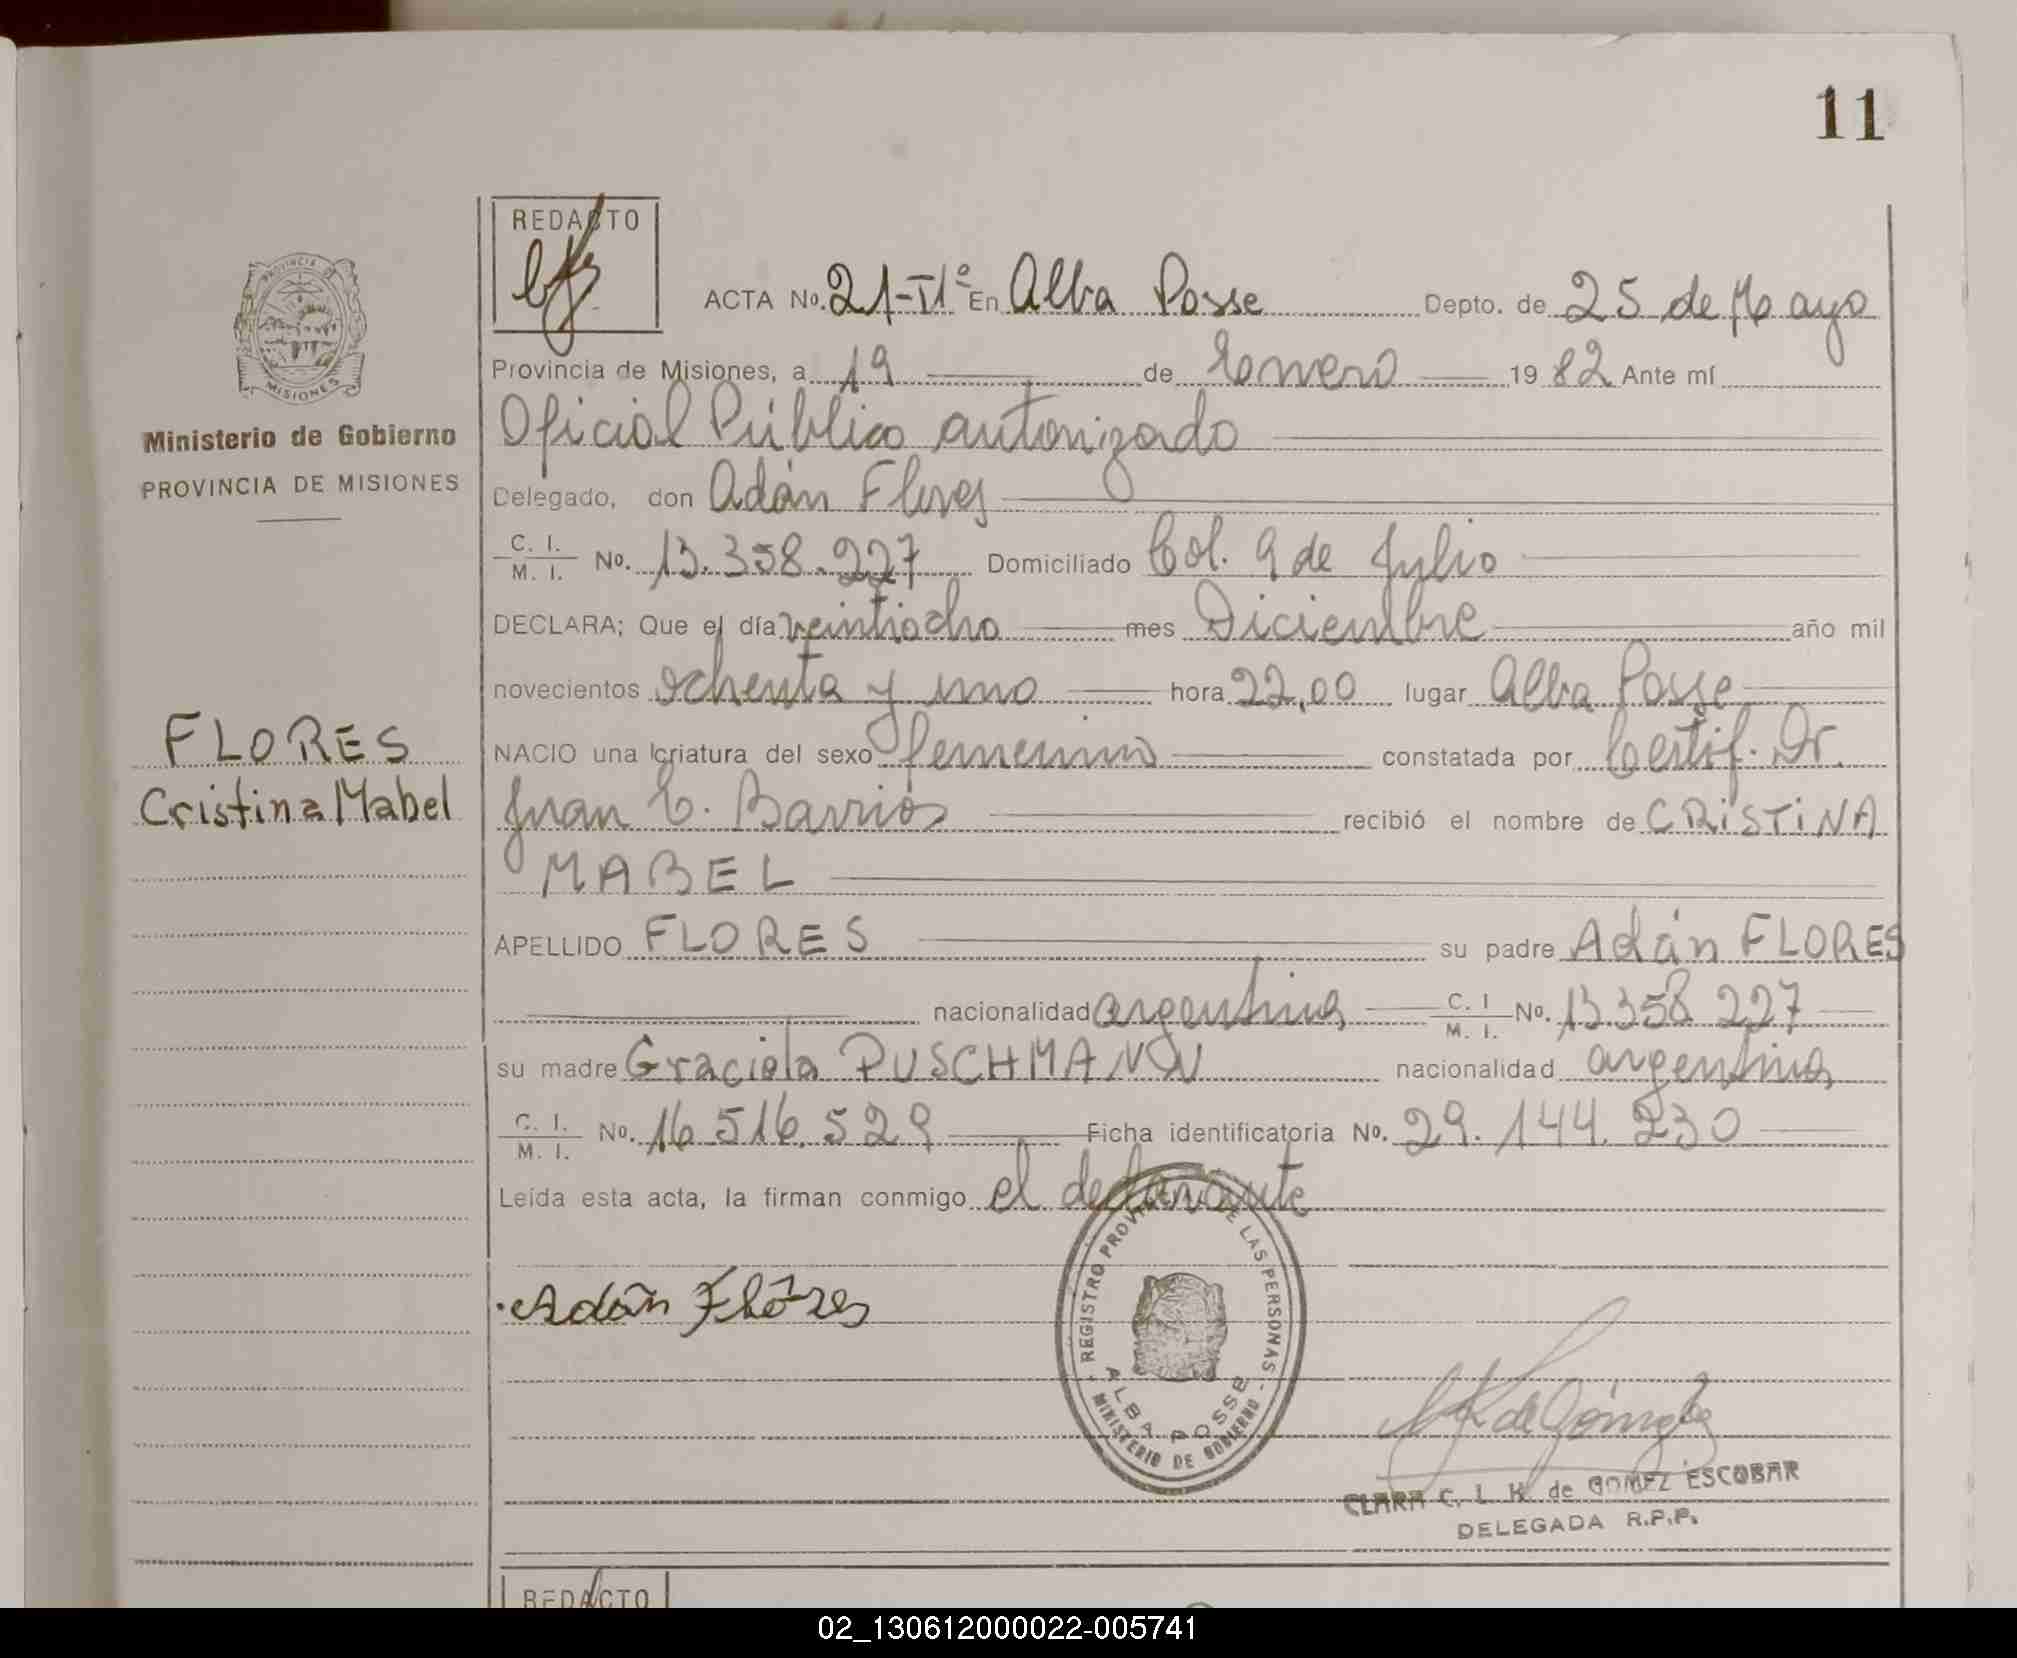 11
REDACTO
ACTA No. 21-T1º En Alba Posse Depto. de 25 de Mayo
Provincia de Misiones, a 19 de Enero 1982 Ante mí
Oficial Público autorizado
Delegado, don Adán Flores
C. I. / M. I. No. 13.358.227 Domiciliado Col. 9 de Julio
DECLARA; Que el día veintiocho mes Diciembre año mil
novecientos ochenta y uno hora 22,00 lugar Alba Posse
NACIO una criatura del sexo femenino constatada por Certif. Dr.
Juan C. Barrios recibió el nombre de CRISTINA
MABEL
APELLIDO FLORES su padre Adán FLORES
nacionalidad argentina C. I. / M. I. No. 13.358.227
su madre Graciela PUSCHMANN nacionalidad argentina
C. I. / M. I. No. 16.516.529 Ficha identificatoria No. 29.144.230
Leída esta acta, la firman conmigo el declarante
Adán Flores
PROVINCIA DE
MISIONES
Ministerio de Gobierno
PROVINCIA DE MISIONES
FLORES
Cristina Mabel
REGISTRO PROVINCIAL DE LAS PERSONAS
ALBA POSSE
MINISTERIO DE GOBIERNO
de Gómez
CLARA C. L. K. de GOMEZ ESCOBAR
DELEGADA R.P.P.
REDACTO
02_130612000022-005741